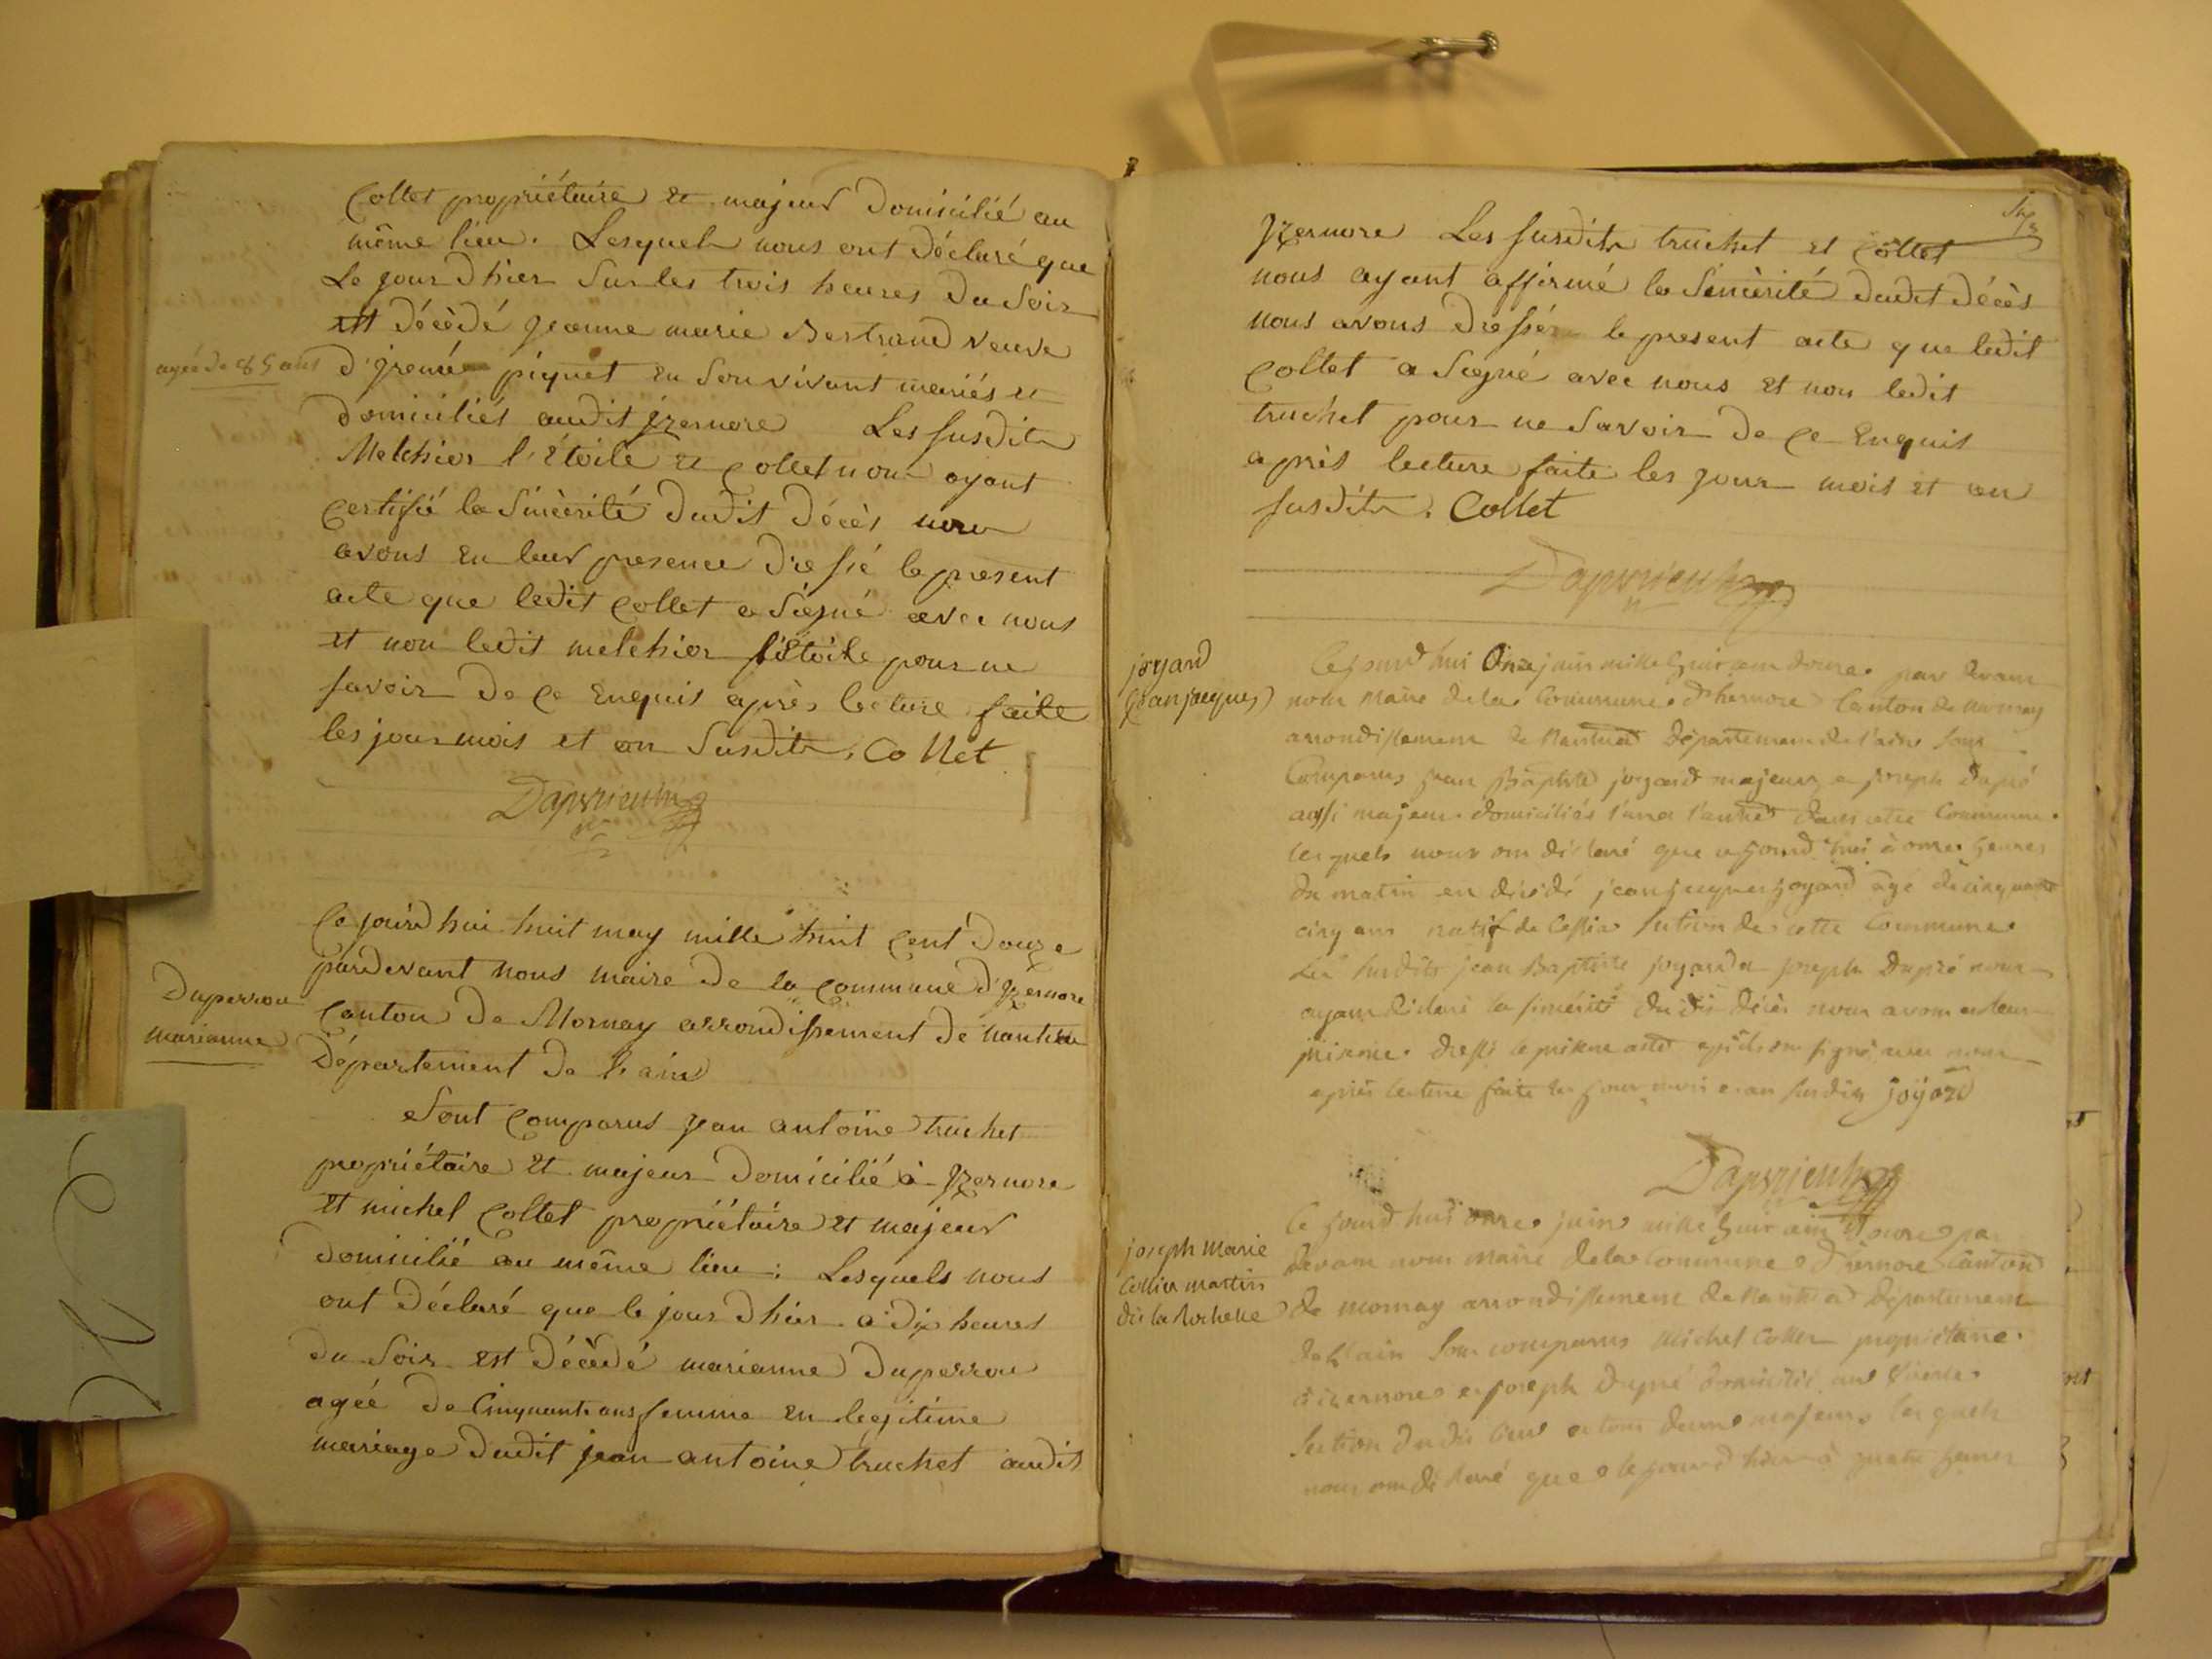 Collet propriétaire et majeur domicilié au
même lieu. Lesquels nous ont déclaré que
Le jour d hier sur les trois heures du soir
est décèdé jeanne marie Bertrand veuve
agée de 85 ans
d'irené piquet en son vivant mariés et
domiciliés audit jzernore Les susdits
Melchior l'étoile et Collet nous ayant
certifié la sincèrité dudit décès nous
avons en leur presence dressé le present
acte que ledit Collet a signé avec nous
et non ledit melchior l'étoile pour ne
savoir de ce enquis après lecture faite
les jour mois et an susdits. Collet
Ce jourd hui huit may mille huit cent douze
pardevant nous maire de la commune d'jzernore
Duperrou
marianne
Canton de Mornay arrondissement de nantua
Département de l'ain
Sont comparus jean antoine truchet
propriétaire et majeur domicilié à jzernore
et michel Collet propriétaire et majeur
domicilié au même lieu : Lesquels nous
ont déclaré que le jour d hier à dix heures
du soir est décèdé marianne duperrou
agée de Cinquante ans femme en legitime
mariage dudit jean antoine truchet audit
jzernore Les susdits truchet et Collet
nous ayant affirmé la sincèrité dudit décès
nous avons dressér le present acte que ledit
Collet a signé avec nous et non ledit
truchet pour ne savoir de ce enquis
après lecture faite les jour mois et an
susdits. Collet
joyard
jean jacques
Cejourd'hui Onze juin mille huit cent douze par devant
nous Maire de la Commune d'Izernore Canton de mornay
arrondissement de Nantua Département de l'ain sont
Comparus jean Baptiste joyard majeur et joseph dupré
aussi majeur domiciliés l'un et l'autre dans cette Commune
lesquels nous ont déclaré que cejourd'hui à onze heures
du matin est décédé jean jacques joyard agé de cinquante
cinq ans natif de Cessia section de cette Commune
Les susdits jean Baptiste joyard et joseph Dupré nous
ayant déclaré la sincérité dudit décès nous avons en leur
présence dressé le présent acte qu'ils ont signé avec nous
après lecture faite les jour mois et an susdits joyard
Ce jourd'hui onze juin mille huit cent douze par
joseph marie
Collier martin
dit la Rochelle
devant nous Maire de la Commune d'Izernore Canton
de mornay arrondissement de Nantua Département
de l'ain Sont comparus Michel Collet propriétaire
à izernore et joseph dupré domicilié au
Section dudit lieu et tous deux majeurs lesquels
nous ont déclaré que le jour d hier à quatre heures